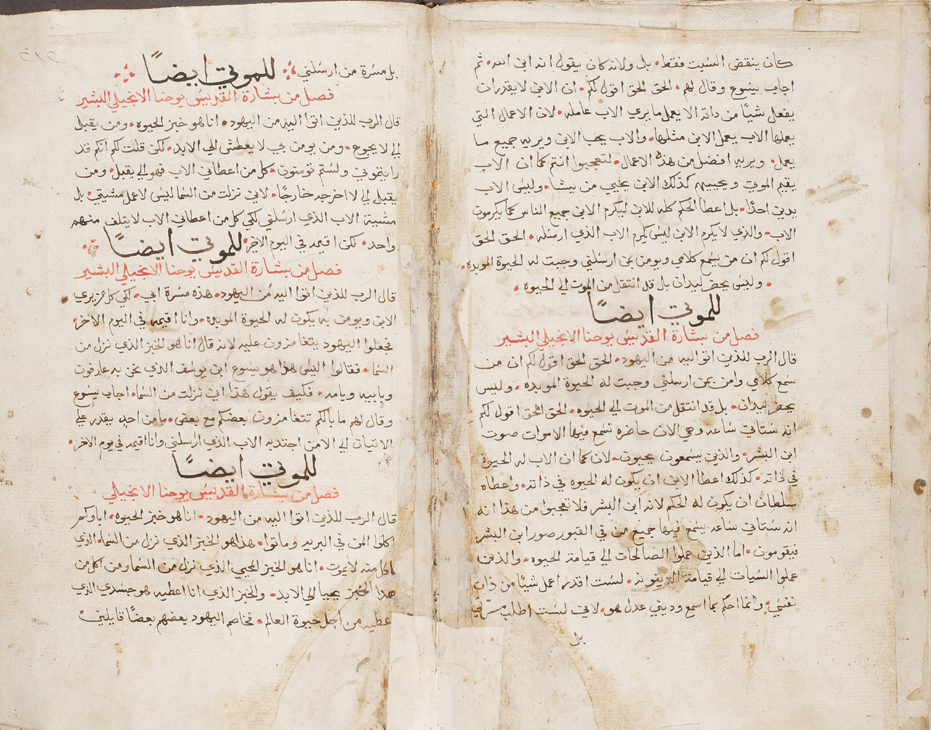 كان ينقض السبت فقط • بل ولانه كان يقول انه ابن الله • ثم
اجاب يسوع وقال لهم • الحق الحق اقول لكم • ان الابن لا يقدر ان
يفعل شيًا من ذاته الا يعمل ما يري الاب عامله • لان الاعمال التي
يعملها الاب يعمل الابن مثلها • والاب يحب الابن ويريه جميع ما
يعمل • ويريه افضل من هذه الاعمال • لتعجبوا انتم كما ان الاب
يقيم الموتي ويحييهم كذلك الابن يحيي من يشا • وليس الاب
يدين احدًا • بل اعطا الحكم كله للابن ليكرم الابن جميع الناس كما يكرمون
الاب • والذي لا يكرم الابن ليس يكرم الاب الذي ارسله • الحق الحق
اقول لكم ان من يسمع كلامي ويومن بمن ارسلني وجبت له الحيوة الموبده •
• وليس يحضر ليدان بل قد انتقل من الموت الي الحيوه •
للموتي ايضًا
فصل من بشارة القديس يوحنا الانجيلي البشير
قال الرب للذين اتوا اليه من اليهود • الحق الحق اقول لكم ان من
سمع كلامي وامن بمن ارسلني وجبت له الحيوة الموبده • وليس
يحضر ليدان • بل قد انتقل من الموت الي الحيوه • الحق الحق اقول لكم
انه ستاتي ساعه وهي الان حاضره تسمع فيها الاموات صوت
ابن البشر • والذين يسمعون يحيون • لان كما ان الاب له الحيوة
في ذاته • كذلك اعطا الابن ان يكون له الحيوه في ذاته • واعطاه
سلطان ان يكون له الحكم لانه ابن البشر • فلا تعجبوا من هذا انه
ستاتي ساعه يسمع فيها جميع من في القبور صوت ابن البشر
فيقومون • اما الذين عملوا الصالحات الي قيامة الحيوه • والذين
عملوا السيات الي قيامة • لست اقدر اعمل شيًا من ذات
نفسي • وانما احكم بما اسمع وديني عدل هو • لاني لست اطلب مسرتي
بل
بل مسرة من ارسلني • للموتي ايضًا
فصل من بشارة القديس يوحنا الانجيلي البشير
قال الرب للذين اتوا اليه من اليهود • انا هو خبز الحيوه • ومن يقبل
الي لا يجوع • ومن يومن بي لا يعطش الي الابد • لكن قلت لكم انكم قد
رايتموني ولستم تومنون • كل من اعطاني الاب فهو الي يقبل • ومن
يقبل الي لا اخرجه خارجًا • لاني نزلت من السما ليس لاعمل مشيتي • بل
مشية الاب الذي ارسلني لكي كل من اعطاني الاب لا يتلف منهم
واحد • لكن اقيمه في اليوم الاخر • للموتي ايضًا
فصل من بشارة القديس يوحنا الانجيلي البشير
قال الرب للذين اتوا اليه من اليهود • هذه مسرة ابي • لكي كل من يري
الابن ويومن به يكون له الحيوة الموبده • وانا اقيمه في اليوم الاخر •
فجعلوا اليهود يتغامزون عليه لانه قال انا هو الخبز الذي نزل من
السما • فقالوا اليس هذا هو يسوع ابن يوسف الذي نحن به عارفون
وبابيه وبامه • فكيف يقول هذا اني نزلت من السما • اجاب يسوع
وقال لهم ما بالكم تتغامزون بعضكم مع بعض • ما من احد يقدر علي
الاتيان الي الا من اجتذبه الاب الذي ارسلني وانا اقيمه في يوم الاخر •
للموتي ايضًا
فصل من بشارة القديس يوحنا الانجيلي
قال الرب للذين اتوا اليه من اليهود • انا هو خبز الحيوه • اباوكم
اكلوا المن في البريه وماتوا • هذا هو الخبز الذي نزل من السما • الذي
ياكل منه لا يموت • انا هو الخبز الحيي الذي نزل من السما ومن اكل من
هذا الخبز يحيا الي الابد • والخبز الذي انا اعطيه هو جسدي الذي
اعطيه من اجل حيوة العالم • تخاصم اليهود بعضهم بعضًا قايلين